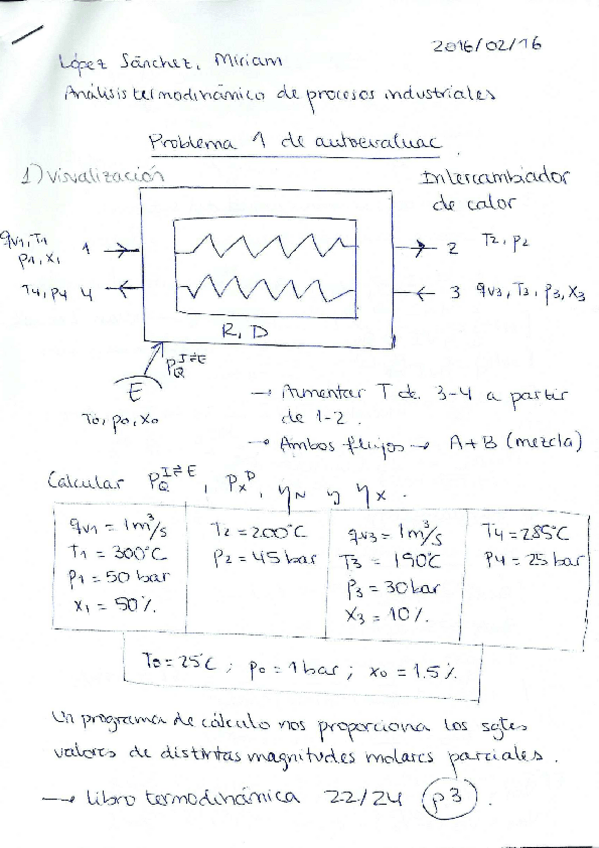 2016/02/16
López Sánchez, Miriam
Análisis termodinámico de procesos industriales
Problema 1 de autoevaluac.
1) visualización
Intercambiador
de calor
qv1, T1
p1, x1
1
2 T2, p2
T4, p4 4
3 qv3, T3, p3, x3
R, D
PQ^I⇌E
E
T0, p0, x0
→ Aumentar T de 3-4 a partir
de 1-2.
→ Ambos flujos → A+B (mezcla)
Calcular PQ^I⇌E, Px^D, ηN y ηx.
qv1 = 1m³/s
T1 = 300°C
p1 = 50 bar
x1 = 50%
T2 = 200°C
p2 = 45 bar
qv3 = 1m³/s
T3 = 190°C
p3 = 30 bar
x3 = 10%
T4 = 285°C
p4 = 25 bar
T0 = 25°C ; p0 = 1 bar ; x0 = 1.5%
Un programa de cálculo nos proporciona los sgtes
valores de distintas magnitudes molares parciales.
→ Libro termodinámica 22/24 p3.